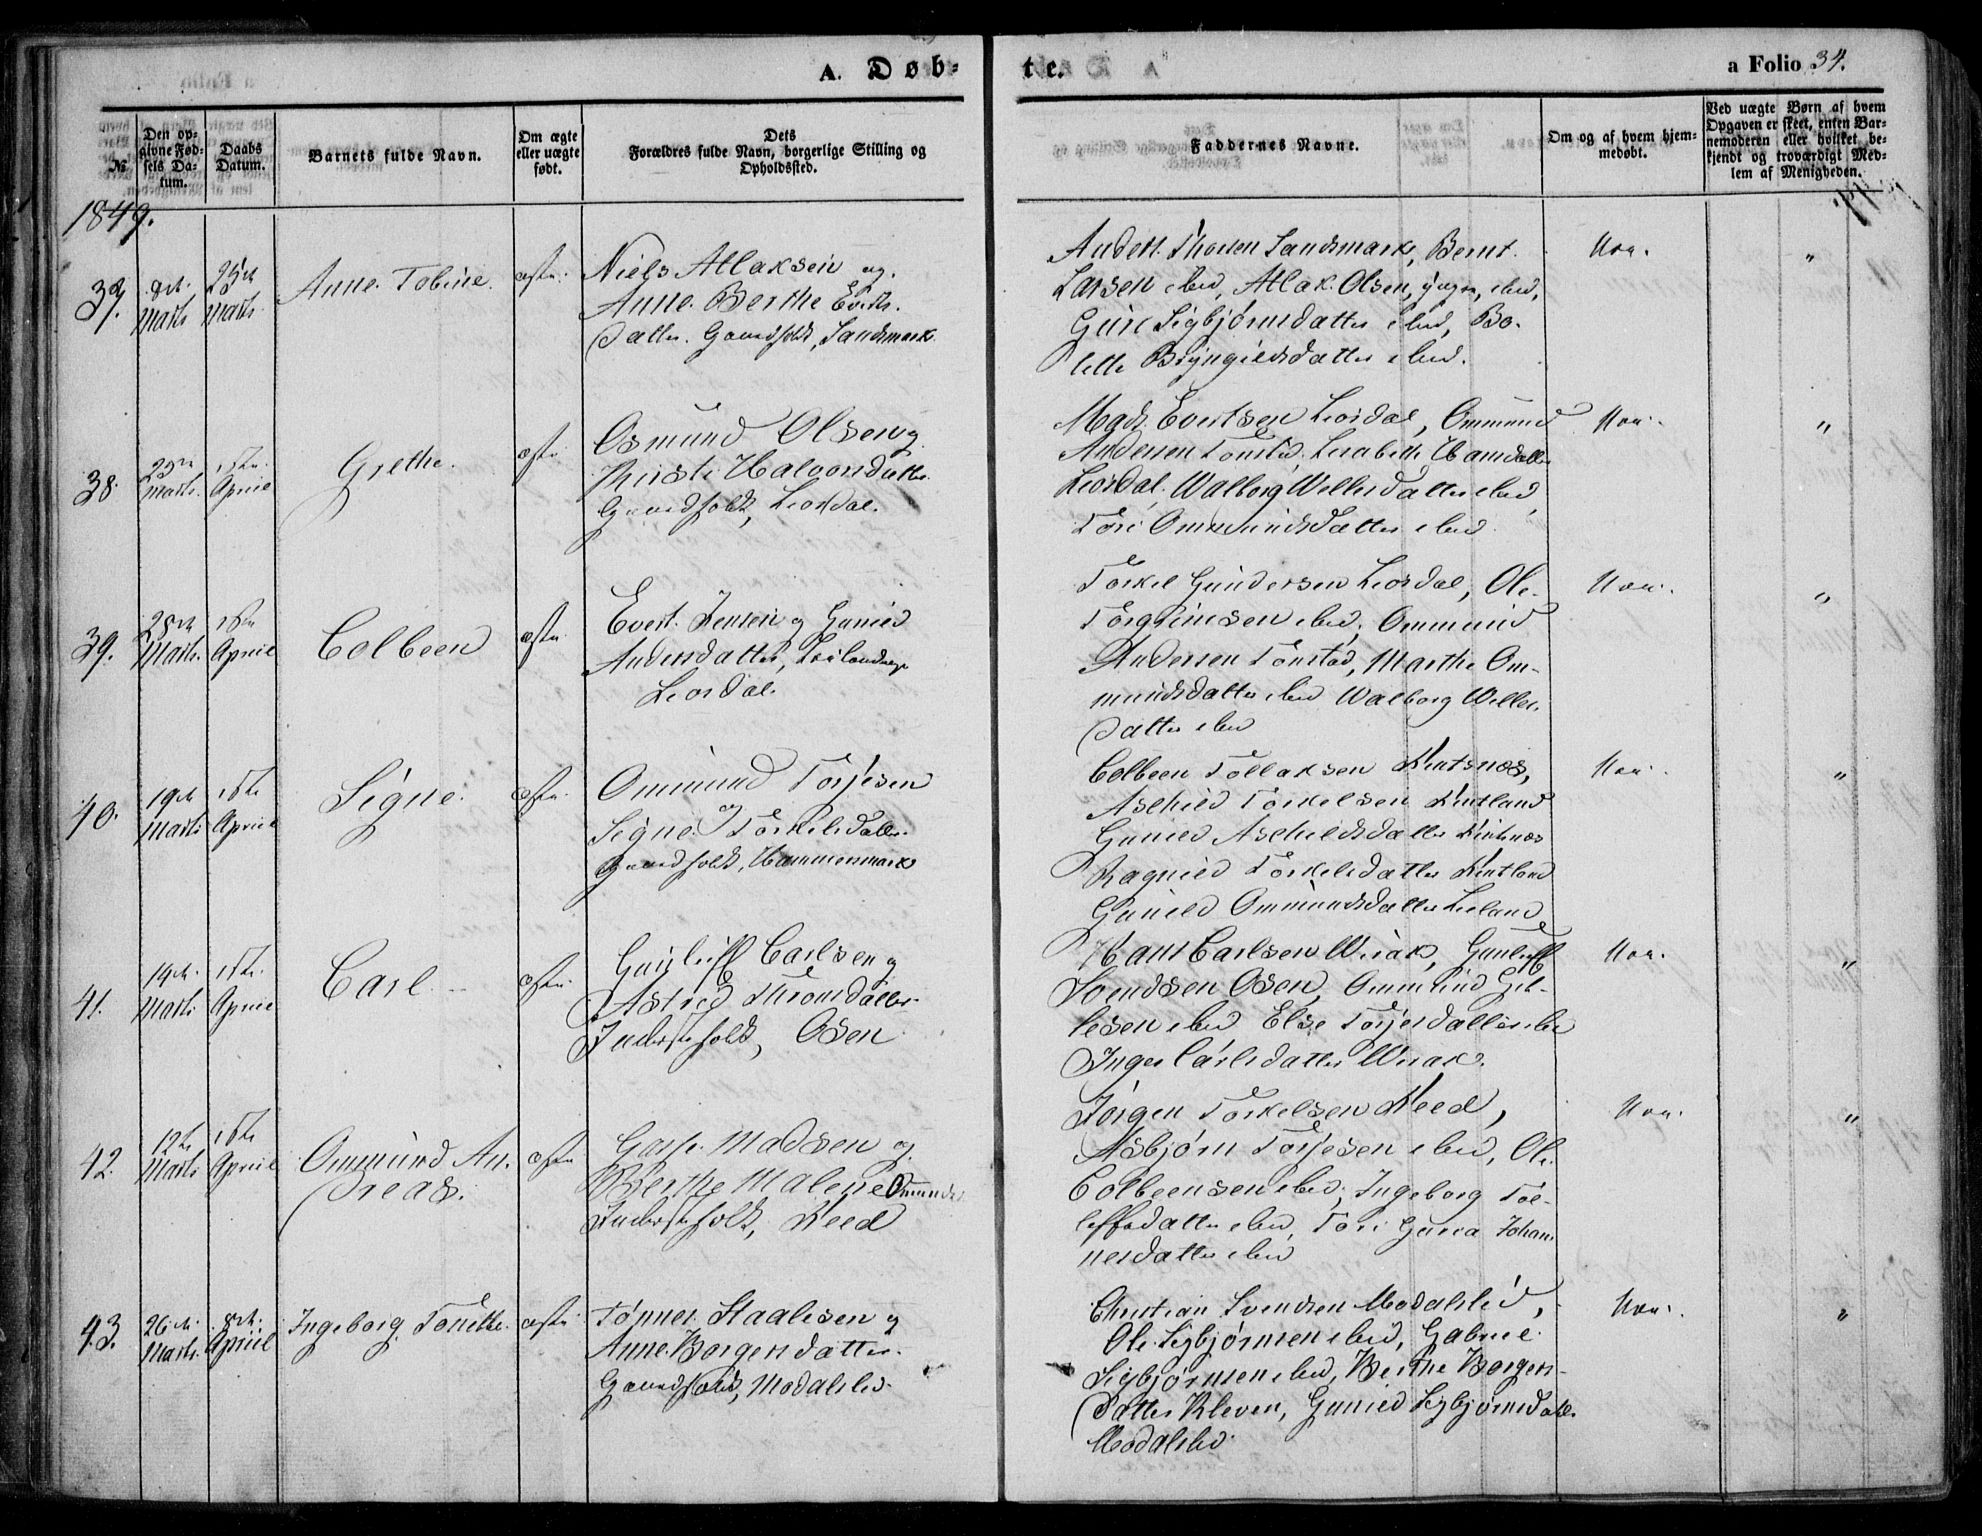 A. Døb-
te.
a Folio 34.
№
Den op-
givne Fød-
sels Da-
tum.
Daabs
Datum.
Barnets fulde Navn.
Om ægte
eller uægte
født.
Dets
Forældres fulde Navn, borgerlige Stilling og
Opholdssted.
Faddernes Navne.
Om og af hvem hjem-
medøbt.
Ved uægte Børn af hvem
Opgaven er skeet, enten Bar-
nemoderen eller hvilket be-
kjendt og troværdigt Med-
lem af Menigheden.
1849.
37.
Marts
25de
Marts
Anne Tobine.
Niels Atlaksen og
Anne Berthe Everts-
datter. Gaardfolk, Sandsmark
Anders Thorsen Sandsmark, Bernt
Larsen ibid, Atlak Olsen, ibid,
Guri Sigbjørnsdatter ibid, Bo-
lette Bryngildsdatter ibid.
"
38.
25de
Marts.
1ste
April
Grethe.
Osmund Olsen og
Kirsti Halvorsdatter
Gaardfolk, Liordal.
Mads Evertsen Liordal, Ommund
Andersen Tonstad, Lisabeth Hansdatter
Liordal, Walborg Willersdatter ibid,
Tori Ommundsdatter ibid
"
39.
28de
Marts.
1ste
April
Colbeen
Evert Jensen og Gunild
Andersdatter,
Liordal.
Torkel Gundersen Liordal, Ole
Torgrimsen ibid, Ommund
Andersen Tonstad, Marthe Om-
mundsdatter ibid Walborg Willers-
datter ibid
"
40.
19de
Marts
1ste
April
Signe.
Ommund Torjesen
og
Signe Torkelsdatter
Gaardfolk, Hammersmark
Colbeen Tollaksen Kintsnæs,
Aschild Torkelsen Kintland
Gunild Aschildsdatter Kintsnæs
Ragnild Torkelsdatter Kintland
Gunild Ommundsdatter Liland
"
41.
14de
Marts
1ste
April
Carl
Gunleiff Carlsen og
Astrid Thronsdatter
Inderstfolk, Osen
Hans Carlsen Wirak, Gunleiff
Svendsen Osen, Ommund Gil-
lesen ibid Else Torjersdatter ibid
Inger Carlsdatter Wirak.
"
42.
12te
Marts
1ste
April
Ommund An-
dreas.
Madsen og
Berthe Malene Ommunds
Inderstfolk, Reed
Jørgen Torkelsen Reed,
Asbjørn Torjesen ibid, Ole
Colbeensen ibid, Ingeborg Tol-
leffsdatter ibid, Tori Gurea Johan-
nesdatter ibid
"
43.
26de
Marts.
8de
April
Ingeborg Tonette.
Tønnes Staalesen og
Anne Børgersdatter
Gaardfolk, Modalslid
Christian Svendsen Modalslid,
Ole Sigbjørnsen ibid, Gabriel
Sigbjørnsen ibid, Berthe Børgers-
datter Kleven, Gunild Sigbjørnsdatter
Modalslid
"